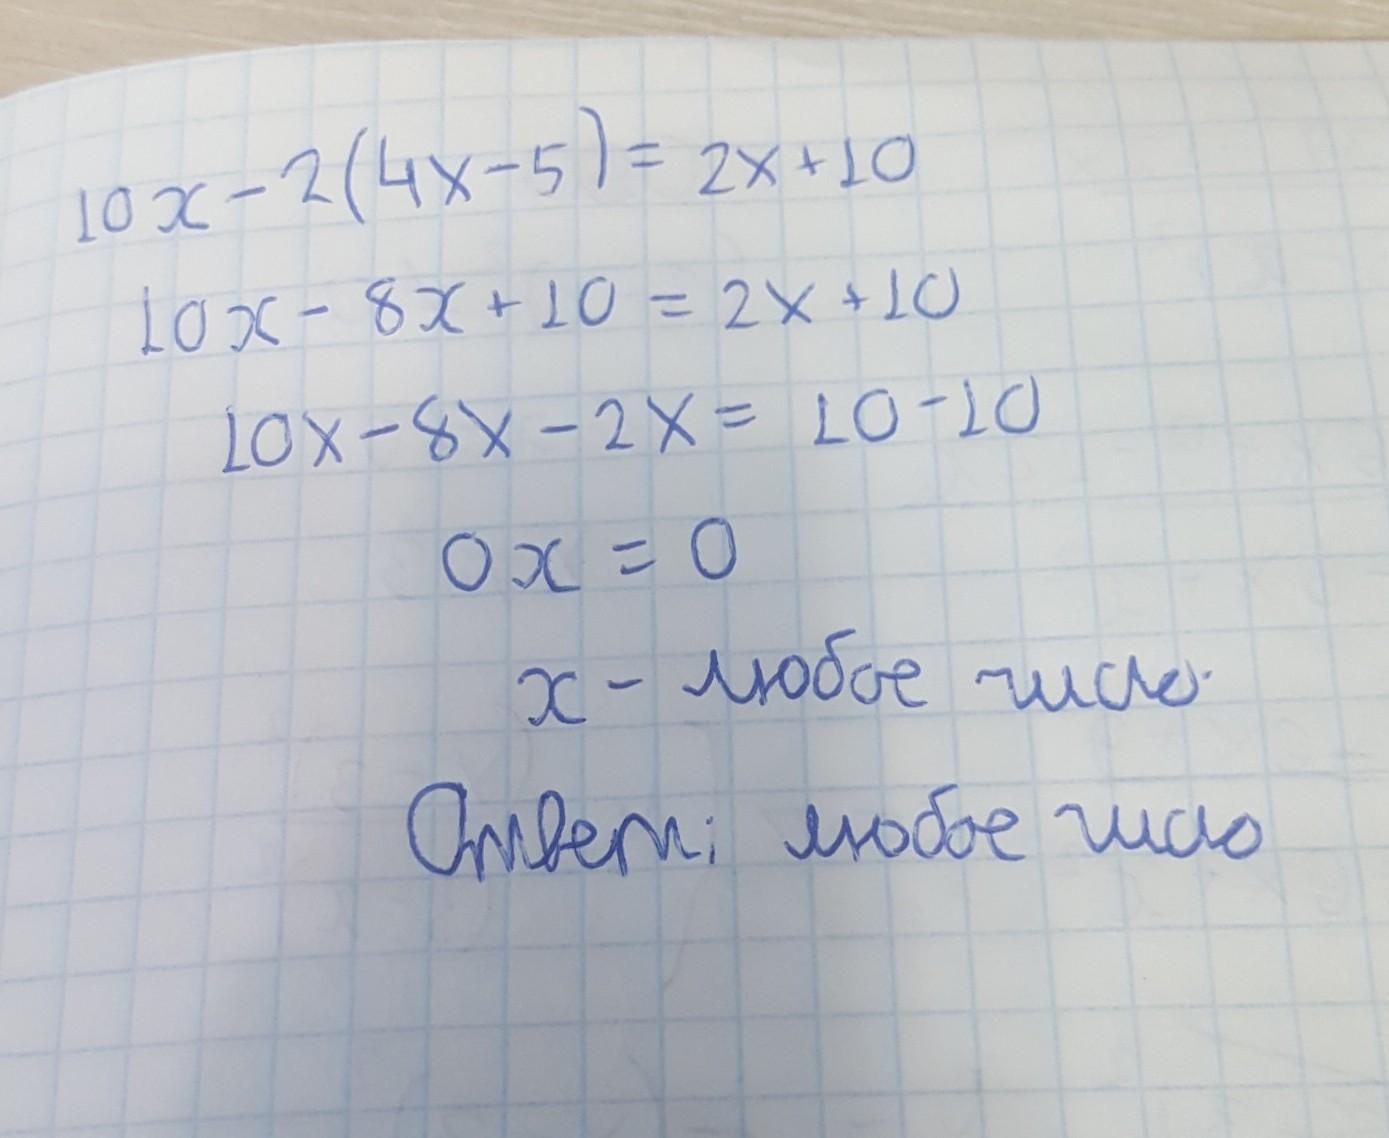 10x - 2(4x-5) = 2x+10
10x - 8x + 10 = 2x + 10
10x - 8x - 2x = 10 - 10
0x = 0
x - любое число.
Ответ: любое число